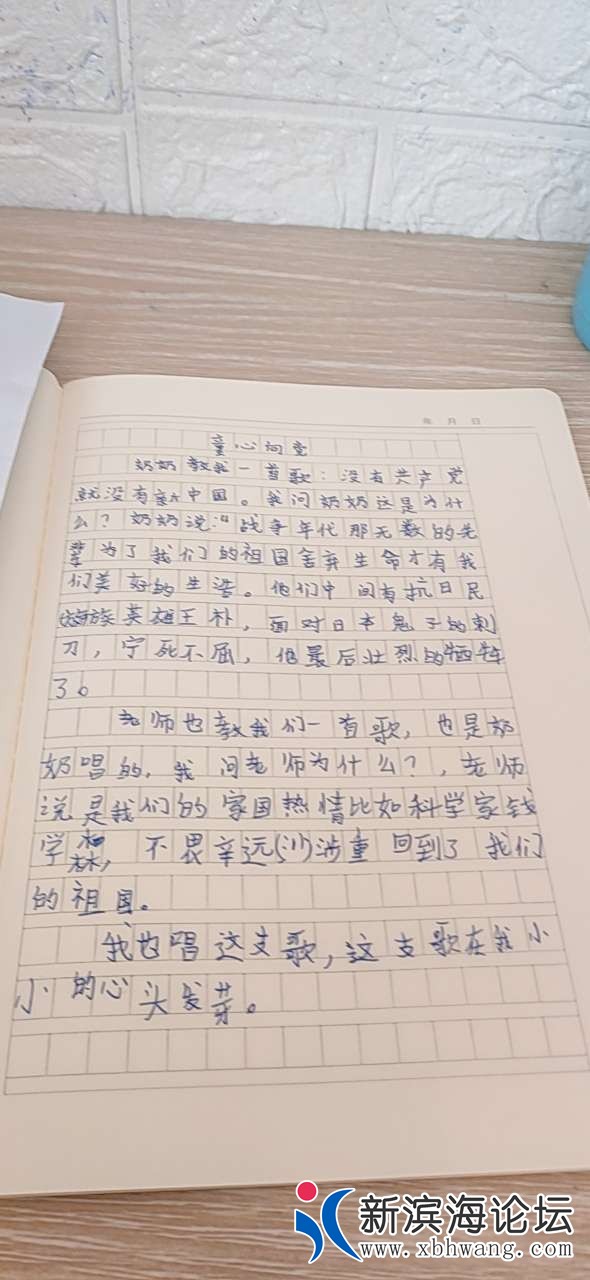 年 月 日
童心向党
奶奶教我一首歌：没有共产党
就没有新中国。我问奶奶这是为什
么？奶奶说："战争年代那无数的先
辈为了我们的祖国舍弃生命才有我
们美好的生活。他们中间有抗日民
族英雄王朴，面对日本鬼子的刺
刀，宁死不屈，他最后壮烈的牺牲
了。
老师也教我们一首歌，也是奶
奶唱的，我问老师为什么？，老师
说是我们的家国热情比如科学家钱
学森，不畏辛远(川)涉重回到了我们
的祖国。
我也唱这支歌，这支歌在我小
小的心头发芽。
新滨海论坛
www.xbhwang.com